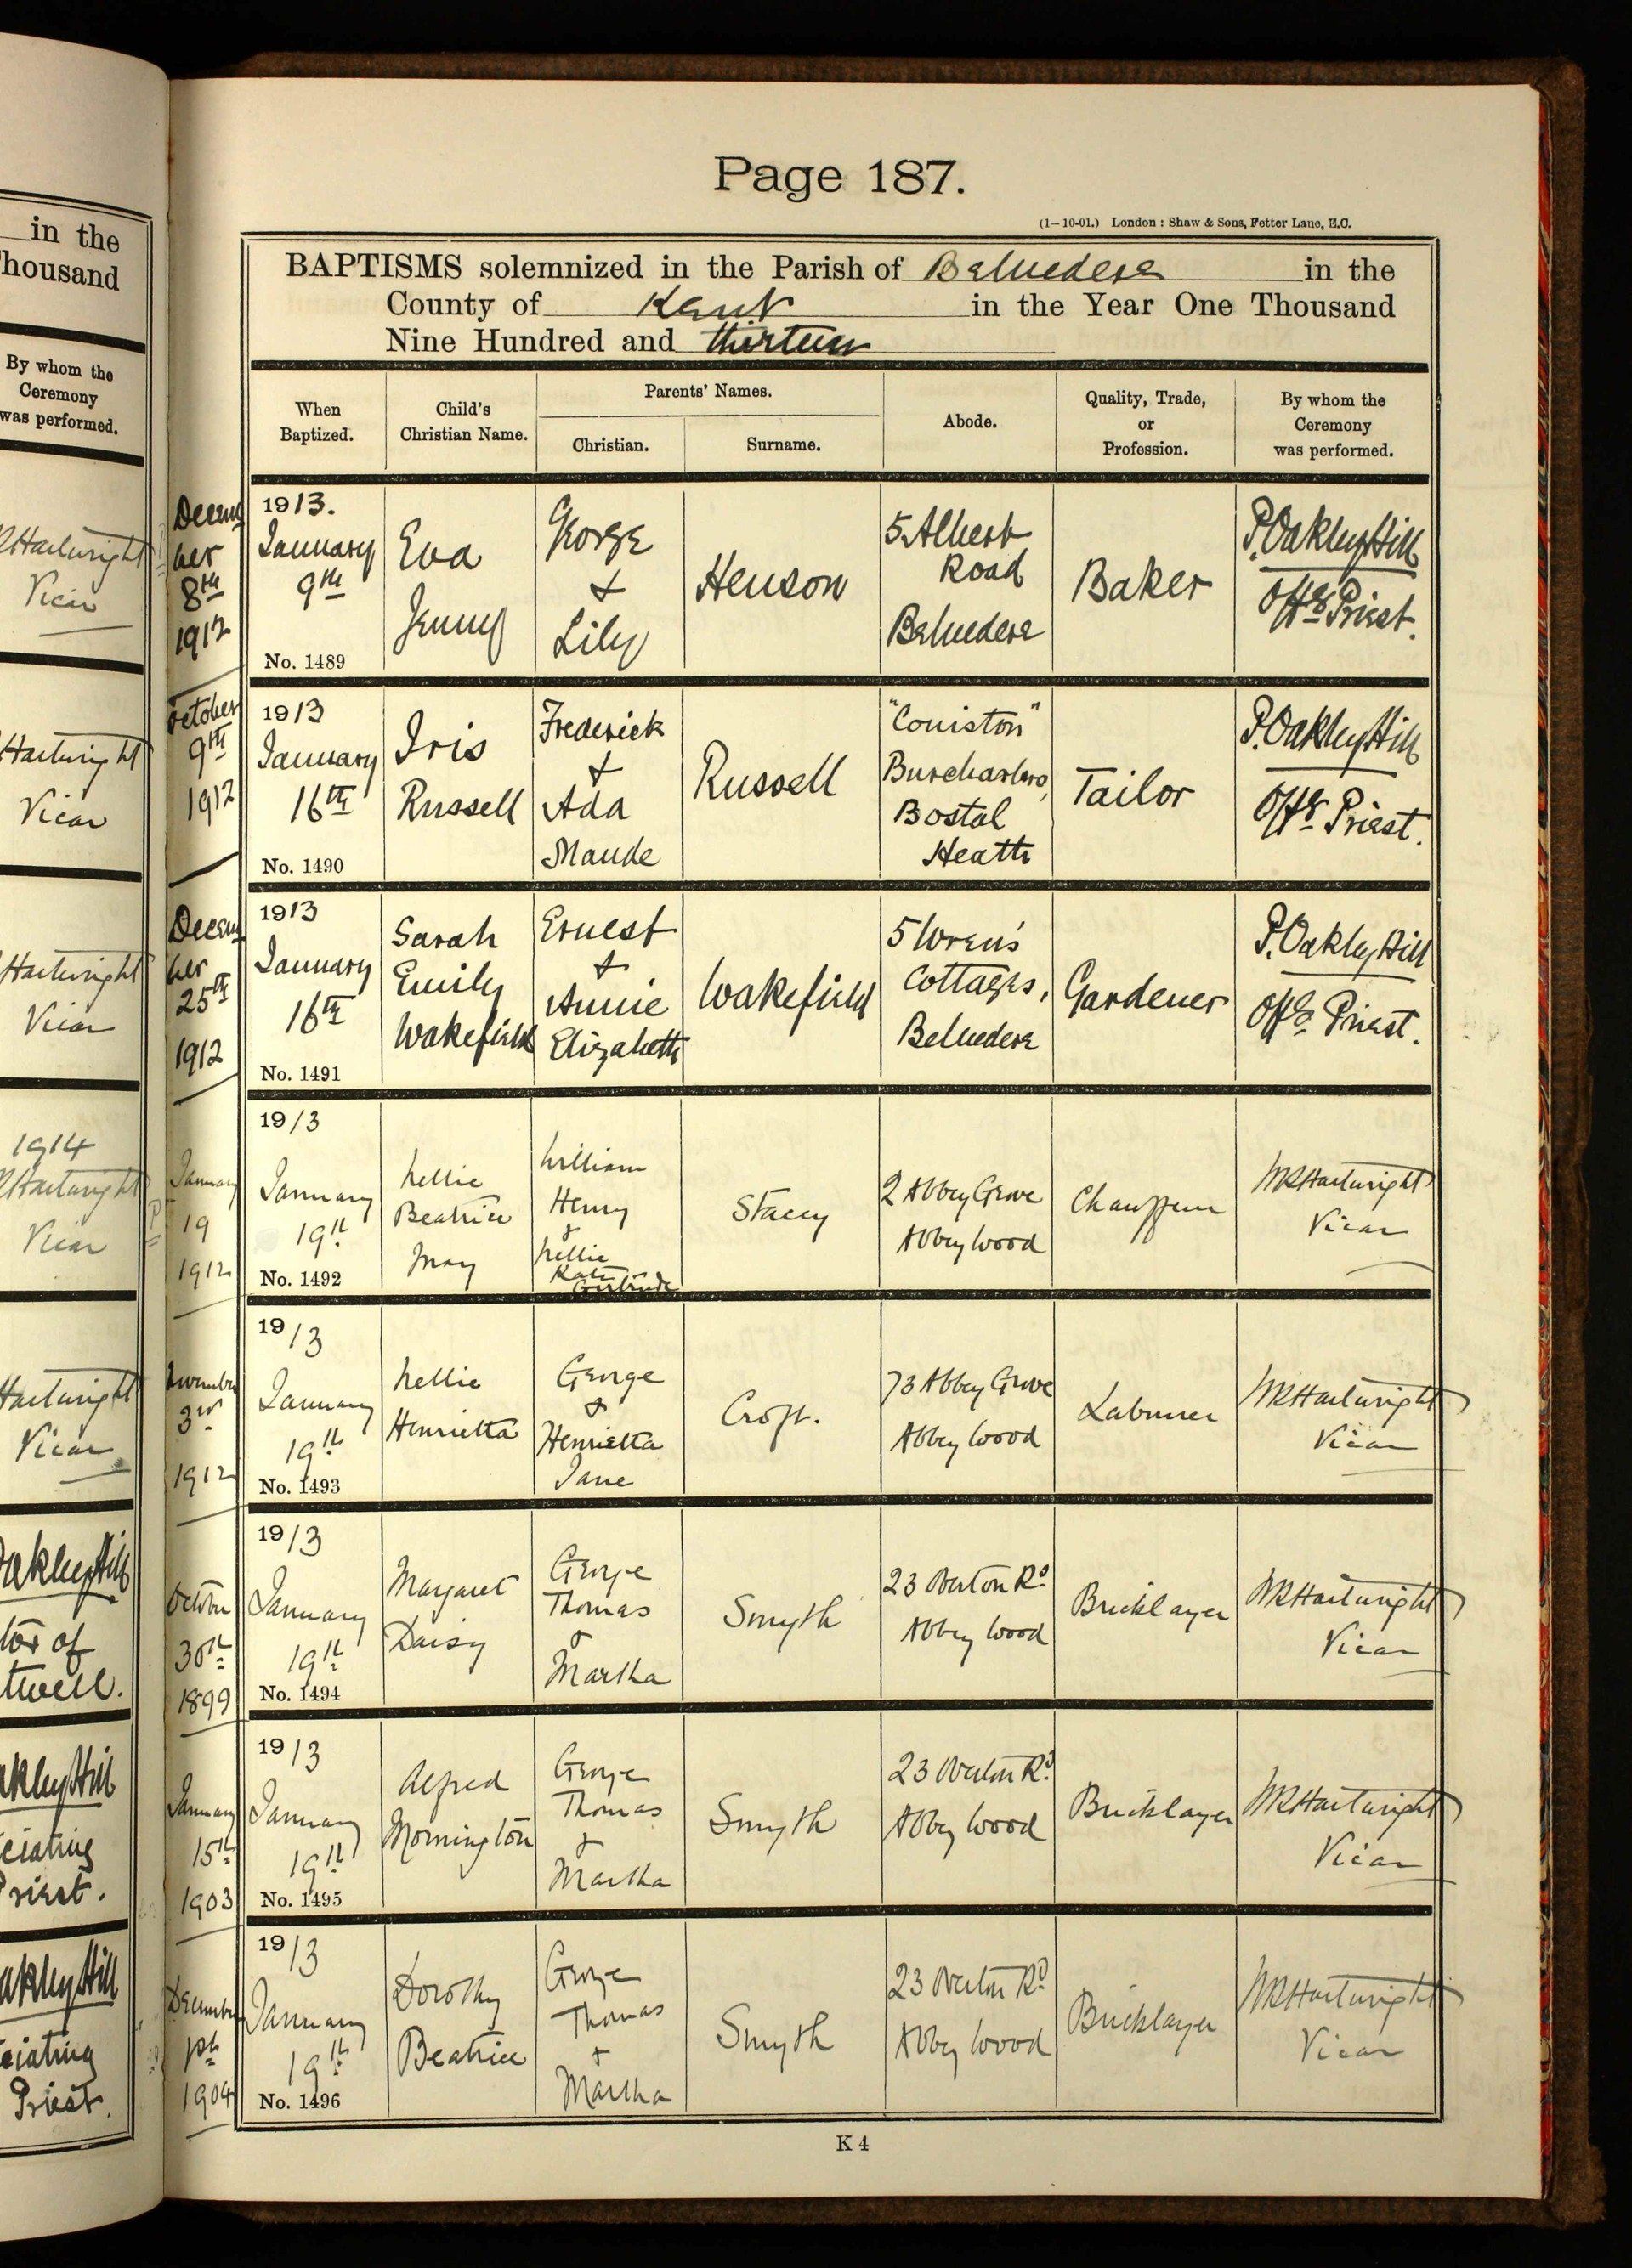 in the
Thousand
By whom the
Ceremony
was performed.
Hartwright
Vicar
Hartwright
Vicar
Hartwright
Vicar
1914
Hartwright
Vicar
Hartwright
Vicar
Oakley Hill
tor of
twell.
akley Hill
ciating
Priest.
akley Hill
ciating
Priest.
Page 187.
(1–10-01.) London: Shaw & Sons, Fetter Lane, E.C.
BAPTISMS solemnized in the Parish of Belvedere in the
County of Kent in the Year One Thousand
Nine Hundred and thirteen
When
Baptized.
Child's
Christian Name.
Parents' Names.
Christian.
Surname.
Abode.
Quality, Trade,
or
Profession.
By whom the
Ceremony
was performed.
Decem
ber
8th
1912
1913.
January
9th
No. 1489
Eva
Jenny
George
+
Lily
Henson
5 Albert
Road
Belvedere
Baker
P. Oakley Hill
Offg Priest.
October
9th
1912
1913
January
16th
No. 1490
Iris
Russell
Frederick
+
Ada
Maude
Russell
"Coniston"
Bostal
Heath
Tailor
P. Oakley Hill
Offg Priest.
Decem
ber
25th
1912
1913
January
16th
No. 1491
Sarah
Emily
Wakefield
Ernest
+
Annie
Elizabeth
Wakefield
5 Wren's
Cottages,
Belvedere
Gardener
P. Oakley Hill
Offg Priest.
January
19
1912
1913
January
19th
No. 1492
Nellie
Beatrice
May
William
Henry
&
Nellie
Kate
Gertrude
Stacey
2 Abbey Grove
Abbey Wood
Chauffeur
WRHartwright
Vicar
November
3rd
1912
1913
January
19th
No. 1493
Nellie
Henrietta
George
&
Henrietta
Jane
Croft.
73 Abbey Grove
Abbey Wood
Labourer
WRHartwright
Vicar
October
30th
1899
1913
January
19th
No. 1494
Margaret
Daisy
George
Thomas
&
Martha
Smyth
23 Overton Rd
Abbey Wood
Bricklayer
WRHartwright
Vicar
January
15th
1903
1913
January
19th
No. 1495
Alfred
Mornington
George
Thomas
&
Martha
Smyth
23 Overton Rd
Abbey Wood
Bricklayer
WRHartwright
Vicar
December
1904
1913
January
19th
No. 1496
Dorothy
Beatrice
George
Thomas
+
Martha
Smyth
23 Overton Rd
Abbey Wood
Bricklayer
WRHartwright
Vicar
K 4